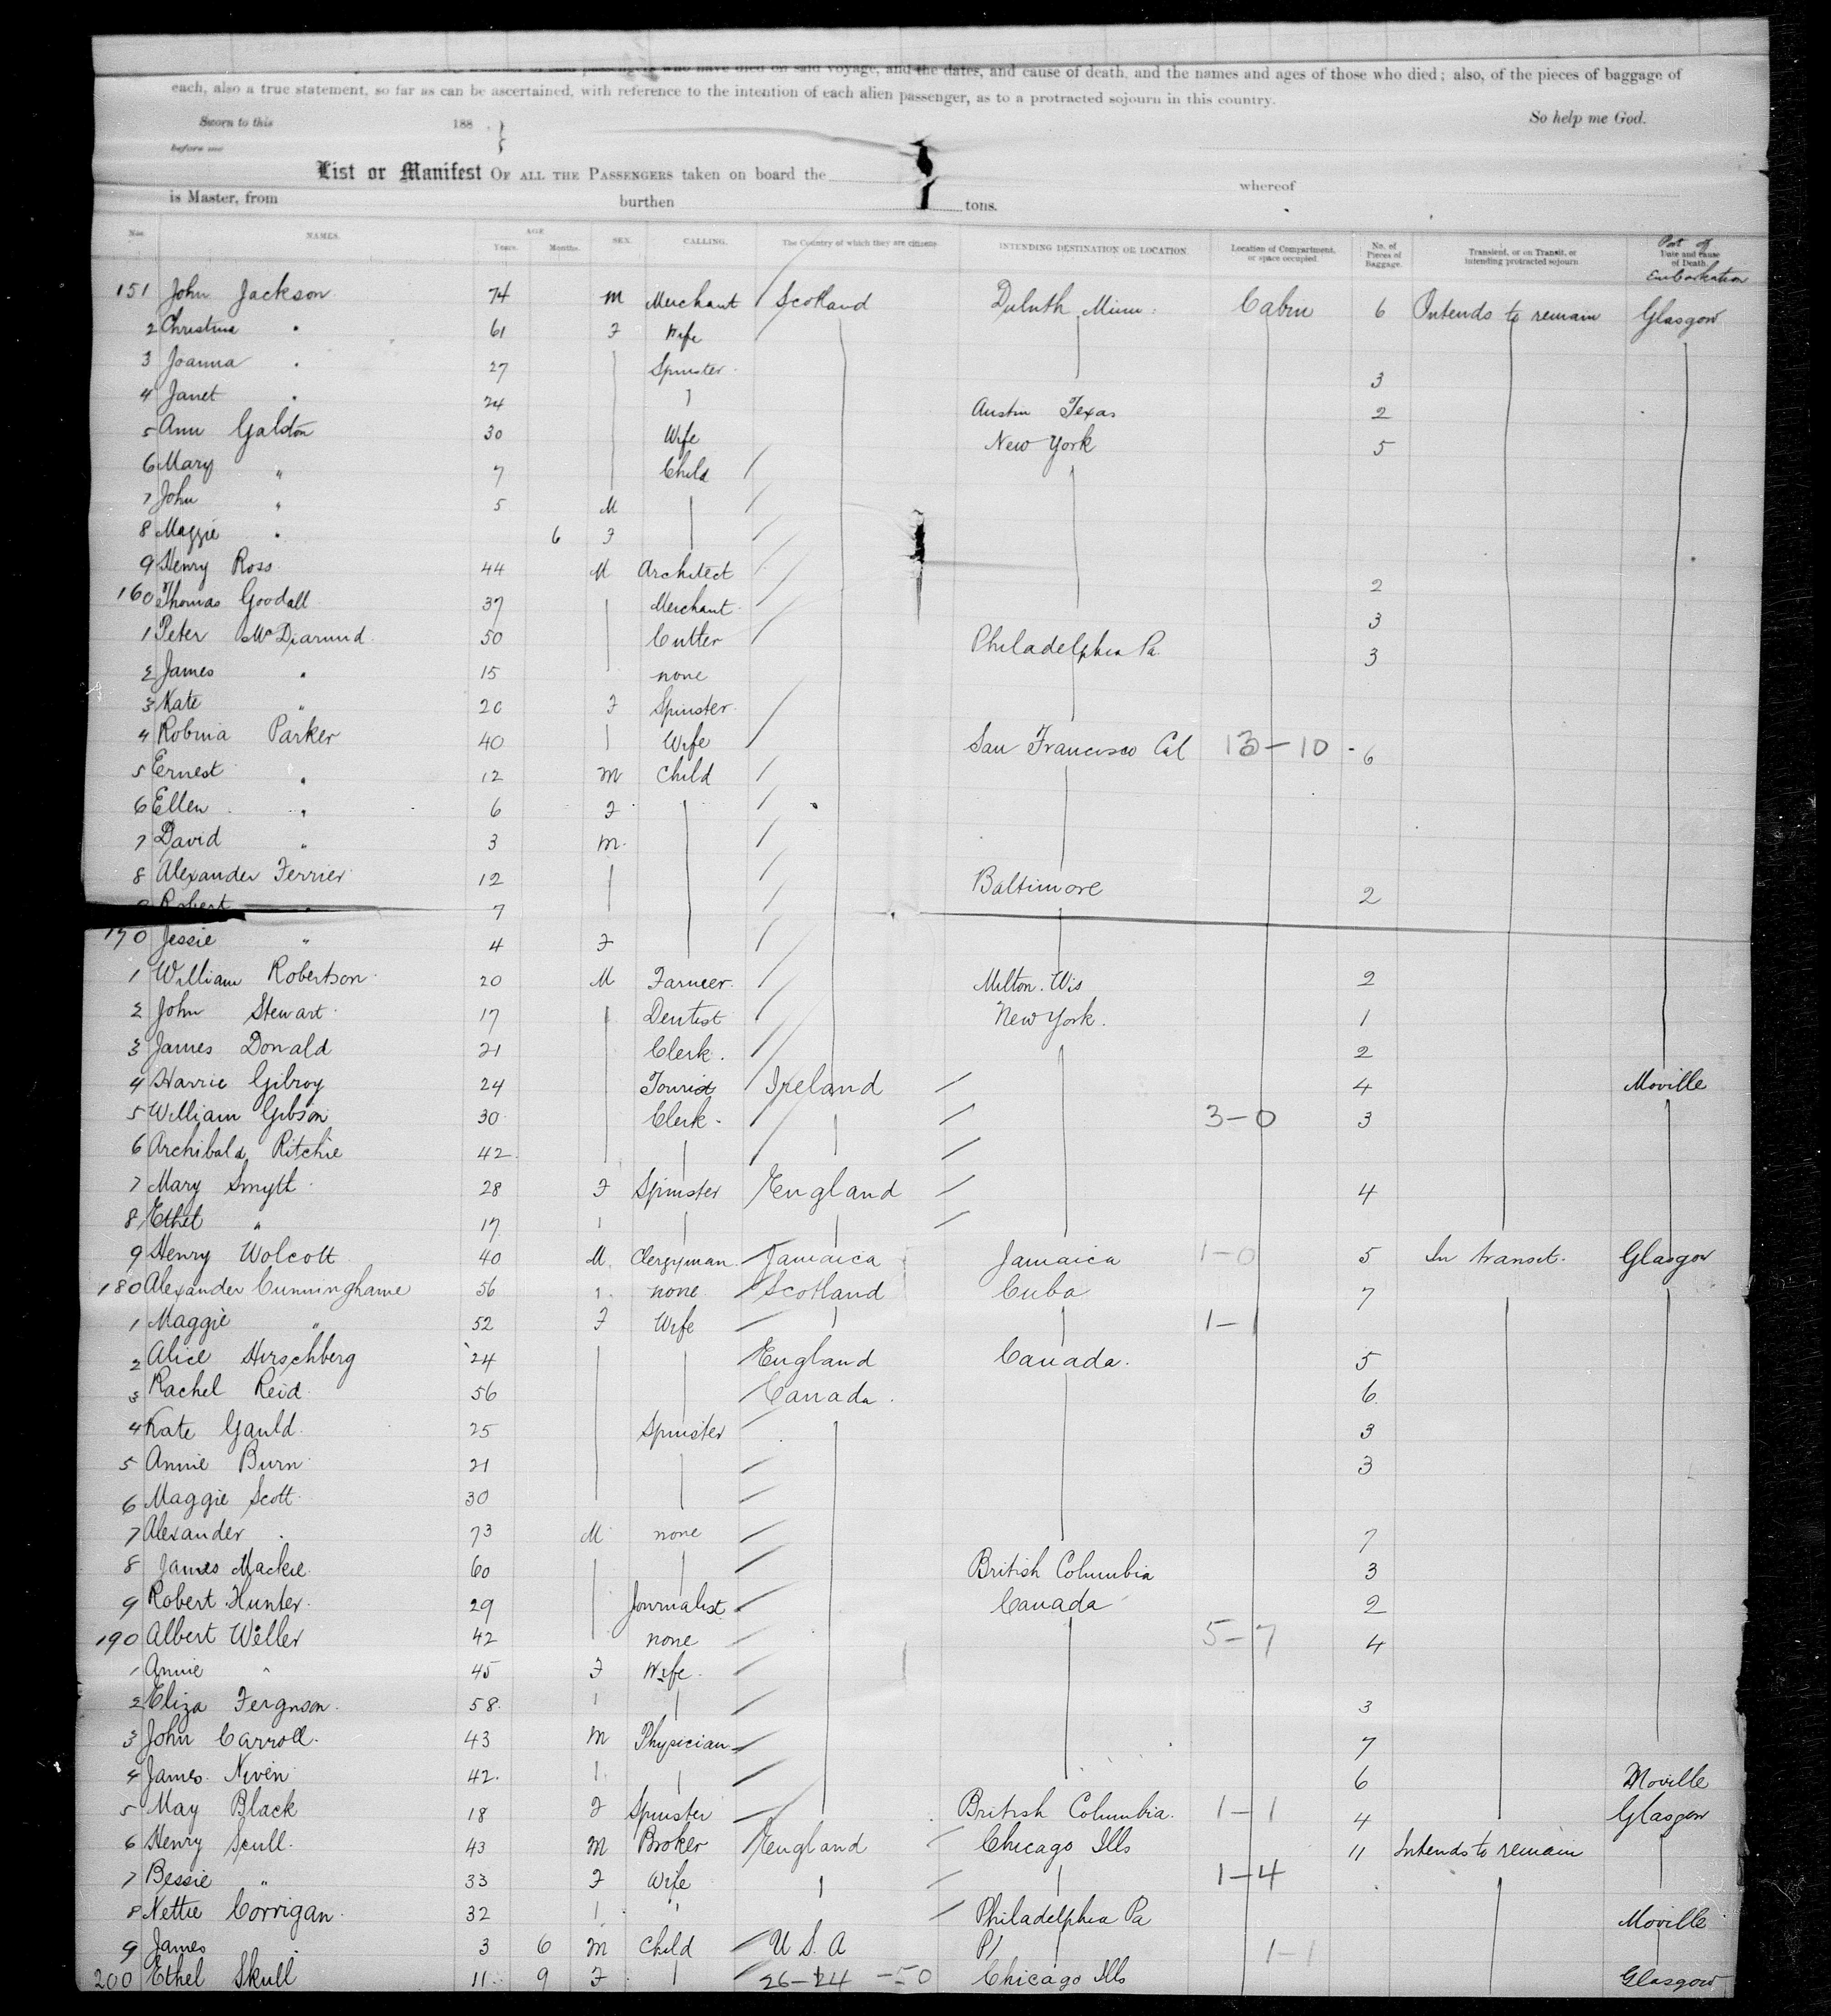 who have died on said voyage, and the dates, and cause of death, and the names and ages of those who died; also, of the pieces of baggage of
each, also a true statement, so far as can be ascertained, with reference to the intention of each alien passenger, as to a protracted sojourn in this country.
Sworn to this 188 So help me God.
before me
List or Manifest OF ALL THE PASSENGERS taken on board the whereof
is Master, from burthen tons.
Nos. NAMES. AGE Years. Months. SEX. CALLING. The Country of which they are citizens. INTENDING DESTINATION OR LOCATION. Location of Compartment, or space occupied No. of Pieces of Baggage. Transient, or on Transit, or intending protracted sojourn Port of Date and cause of Death. Embarkation
151 John Jackson 74 M Merchant Scotland Duluth Minn. Cabin 6 Intends to remain Glasgow
2 Christina " 61 F Wife
3 Joanna " 27 Spinster 3
4 Janet " 24 Austin Texas 2
5 Ann Galdon 30 Wife New York 5
6 Mary " 7 Child
7 John " 5 M
8 Maggie " 6 F
9 Henry Ross 44 M Architect 2
160 Thomas Goodall 37 Merchant 3
1 Peter McDiarmid 50 Cutter Philadelphia Pa. 3
2 James " 15 none
3 Kate " 20 F Spinster
4 Robina Parker 40 Wife San Francisco Cal 13-10 - 6
5 Ernest " 12 M Child
6 Ellen " 6 F
7 David " 3 M
8 Alexander Ferrier 12 Baltimore 2
9 Robert " 7
170 Jessie " 4 F
1 William Robertson 20 M Farmer Milton. Wis 2
2 John Stewart 17 Dentist New York. 1
3 James Donald 21 Clerk. 2
4 Harrie Gilroy 24 Tourist Ireland 4 Moville
5 William Gibson 30 Clerk 3-0 3
6 Archibald Ritchie 42
7 Mary Smyth 28 F Spinster England 4
8 Ethel " 17
9 Henry Wolcott 40 M Clergyman Jamaica Jamaica 1-0 5 In transit. Glasgow
180 Alexander Cunninghame 56 none Scotland Cuba 7
1 Maggie " 52 F Wife 1-1
2 Alice Hirschberg 24 England Canada. 5
3 Rachel Reid 56 Canada. 6
4 Kate Gauld 25 Spinster 3
5 Annie Burn 21 3
6 Maggie Scott 30
7 Alexander " 73 M none 7
8 James Mackie 60 British Columbia 3
9 Robert Hunter 29 Journalist Canada 2
190 Albert Weller 42 none 5-7 4
1 Annie " 45 F Wife
2 Eliza Ferguson 58 3
3 John Carroll 43 M Physician 7
4 James Niven 42 6 Moville
5 May Black 18 F Spinster British Columbia. 1-1 4 Glasgow
6 Henry Scull 43 M Broker England Chicago Ills 11 Intends to remain
7 Bessie " 33 F Wife 1-4
8 Nettie Corrigan 32 " Philadelphia Pa Moville
9 James " 3 6 M Child U S. A 1-1
200 Ethel Skull 11 9 F 26-24 -50 Chicago Ills Glasgow